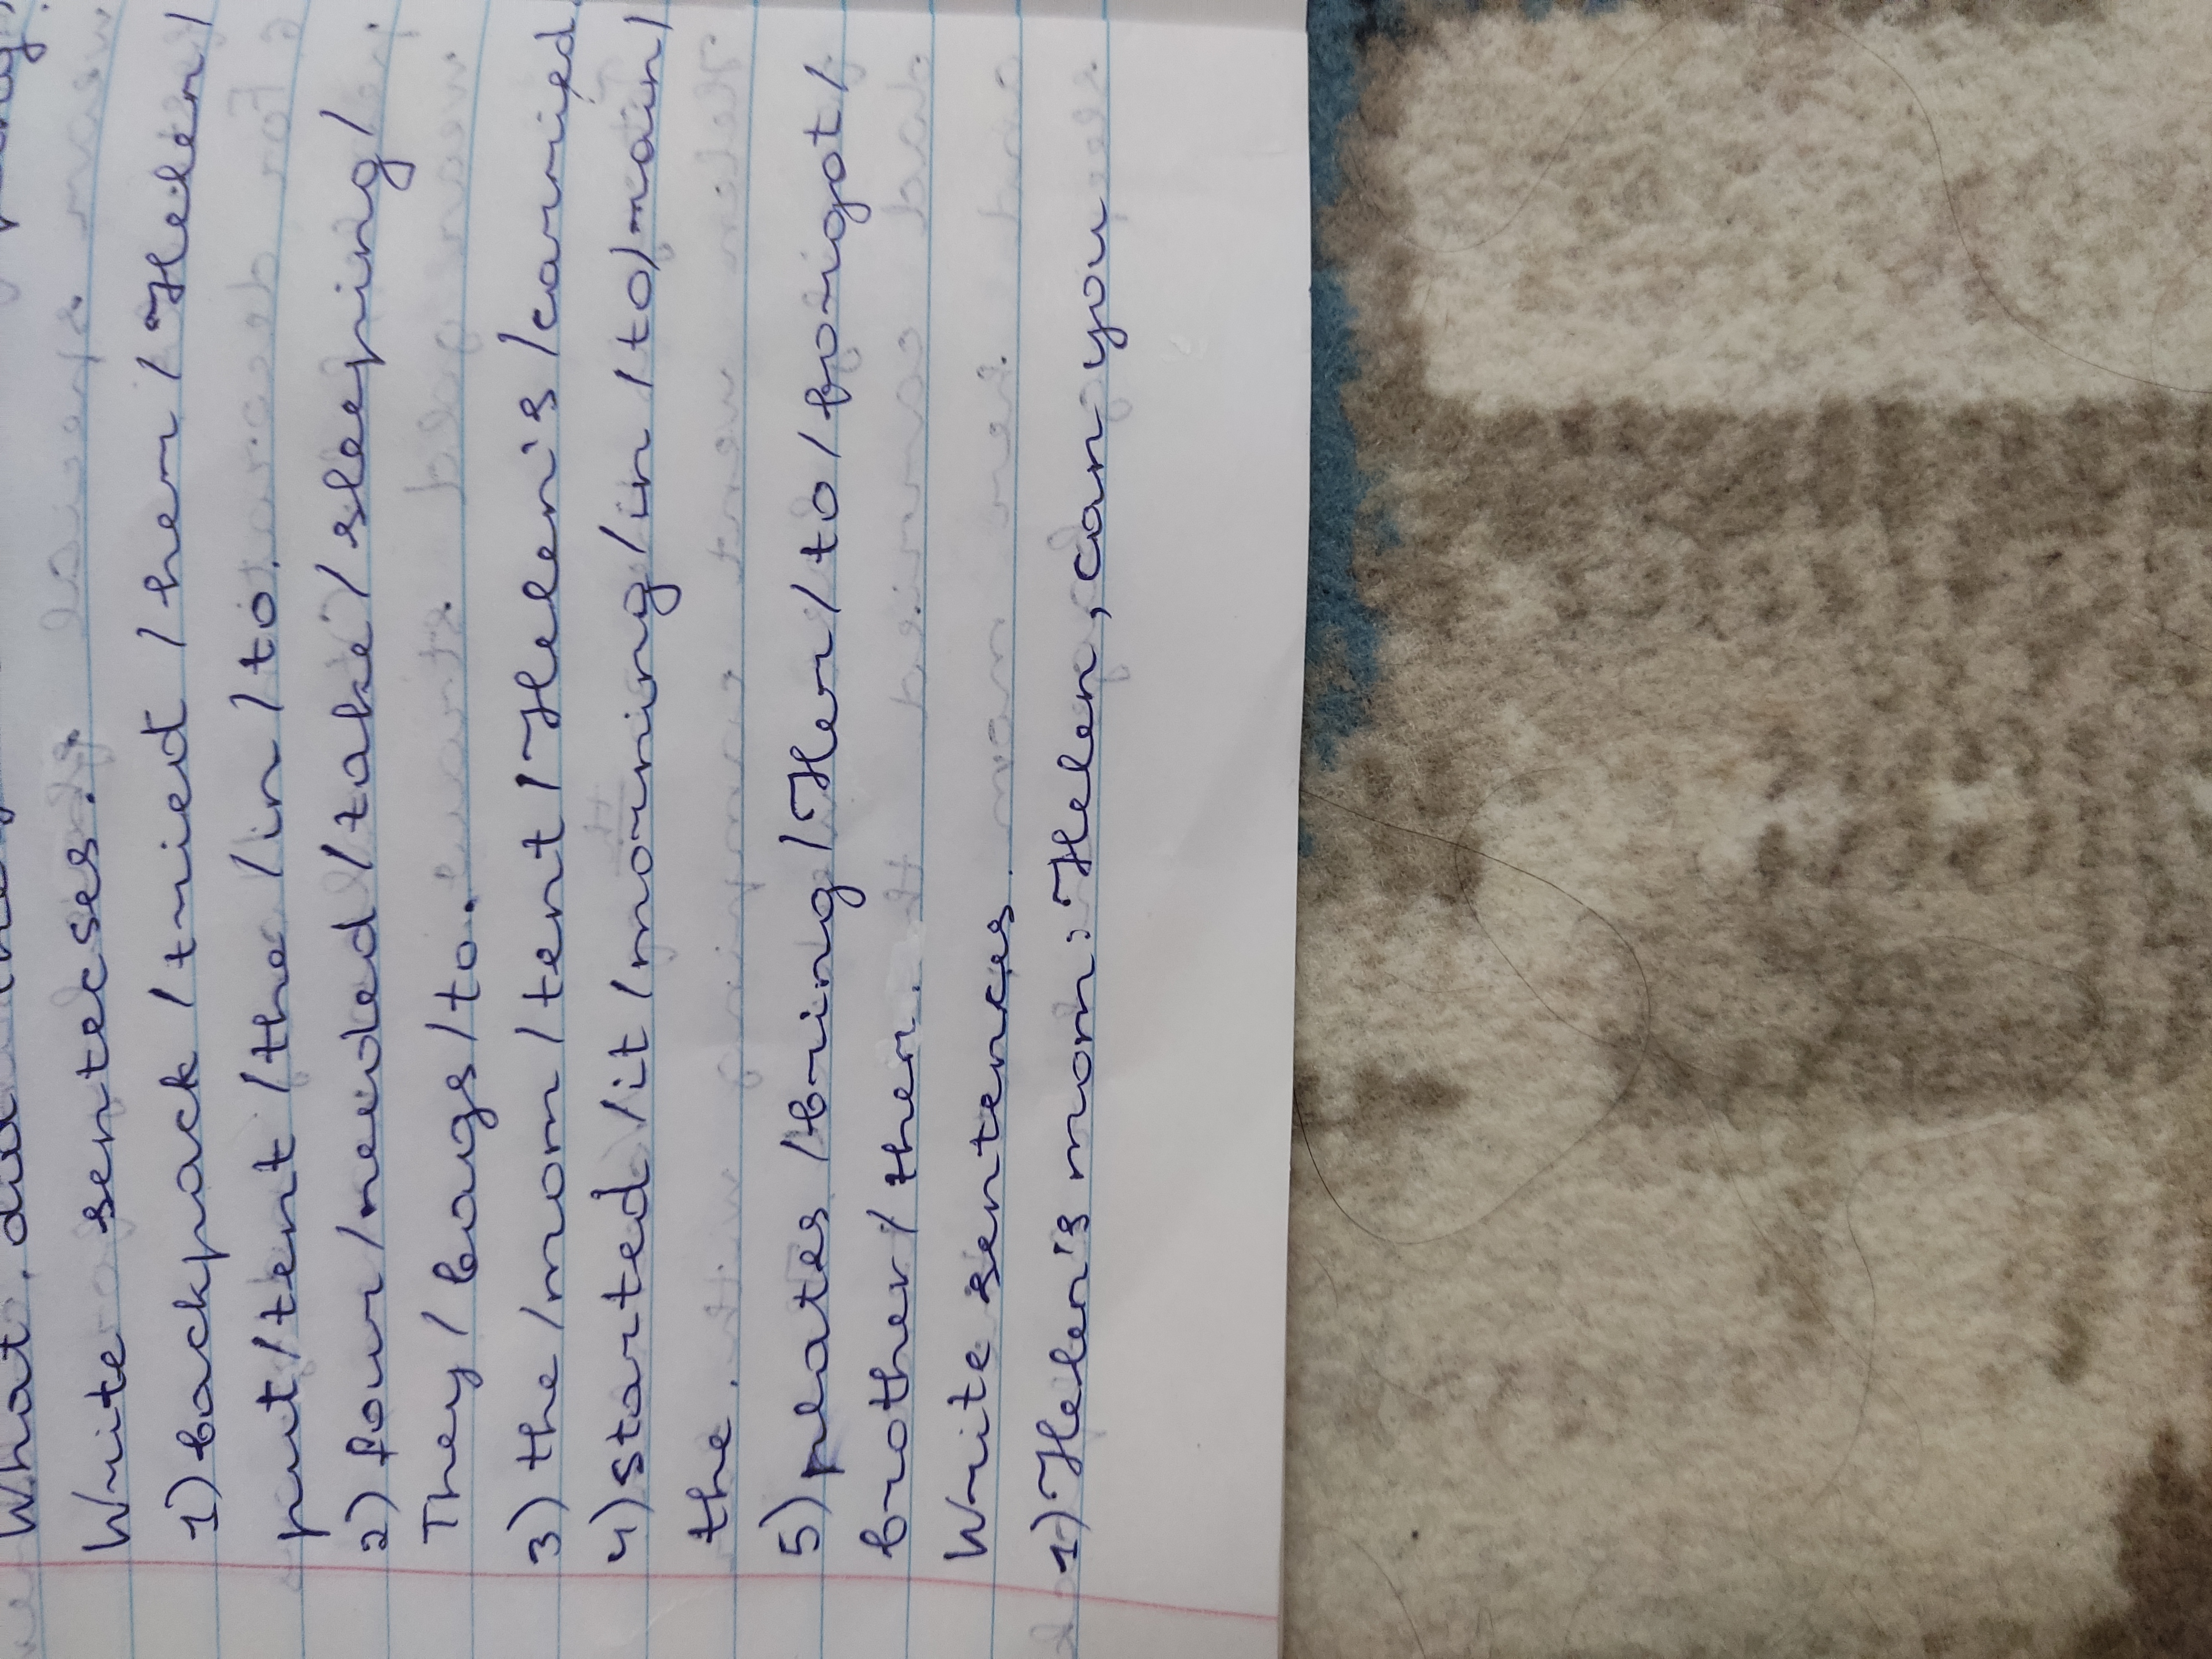 What did
Write sentecses.
1) backpack / tried / her / Helen /
put / tent / the / in / to
2) four / needed / take / sleeping /
They / bags / to.
3) the / mom / tent / Helen's / carried
4) started / it / morning / in / to / rain /
the.
5) plates / bring / Her / to / forigot /
brother / ther.
Write sentences
1) Helen's mom: Helen, can you